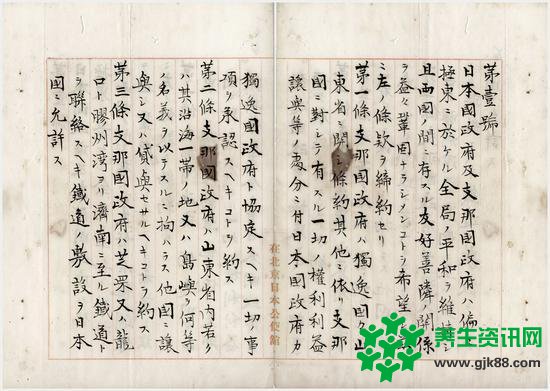 第壹號
日本國政府及支那國政府ハ偏ニ
極東ニ於ケル全局ノ平和ヲ維持シ
且両國ノ間ニ存スル友好善隣ノ關係
ヲ益々鞏固ナラシメンコトヲ希望シ茲
ニ左ノ條款ヲ締約セリ
第一條支那國政府ハ獨逸國カ山
東省ニ關シ條約其他ニ依リ支那
國ニ對シテ有スル一切ノ權利利益
讓與等ノ處分ニ付日本國政府カ
獨逸國政府ト協定スヘキ一切ノ事
項ヲ承認スヘキコトヲ約ス
第二條支那國政府ハ山東省内若ク
ハ其沿海一帯ノ地又ハ島嶼ヲ何等
ノ名義ヲ以テスルニ拘ハラス他國ニ讓
與シ又ハ貸與セサルヘキコトヲ約ス
第三條支那國政府ハ芝罘又ハ龍
口ト膠州湾ヨリ濟南ニ至ル鐵道ト
ヲ聯絡スヘキ鐵道ノ敷設ヲ日本
國ニ允許ス
在北京日本公使館
养生资讯网
www.gjk88.com